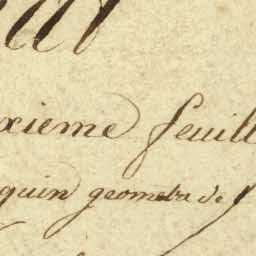 xieme feuill
quin geometre de